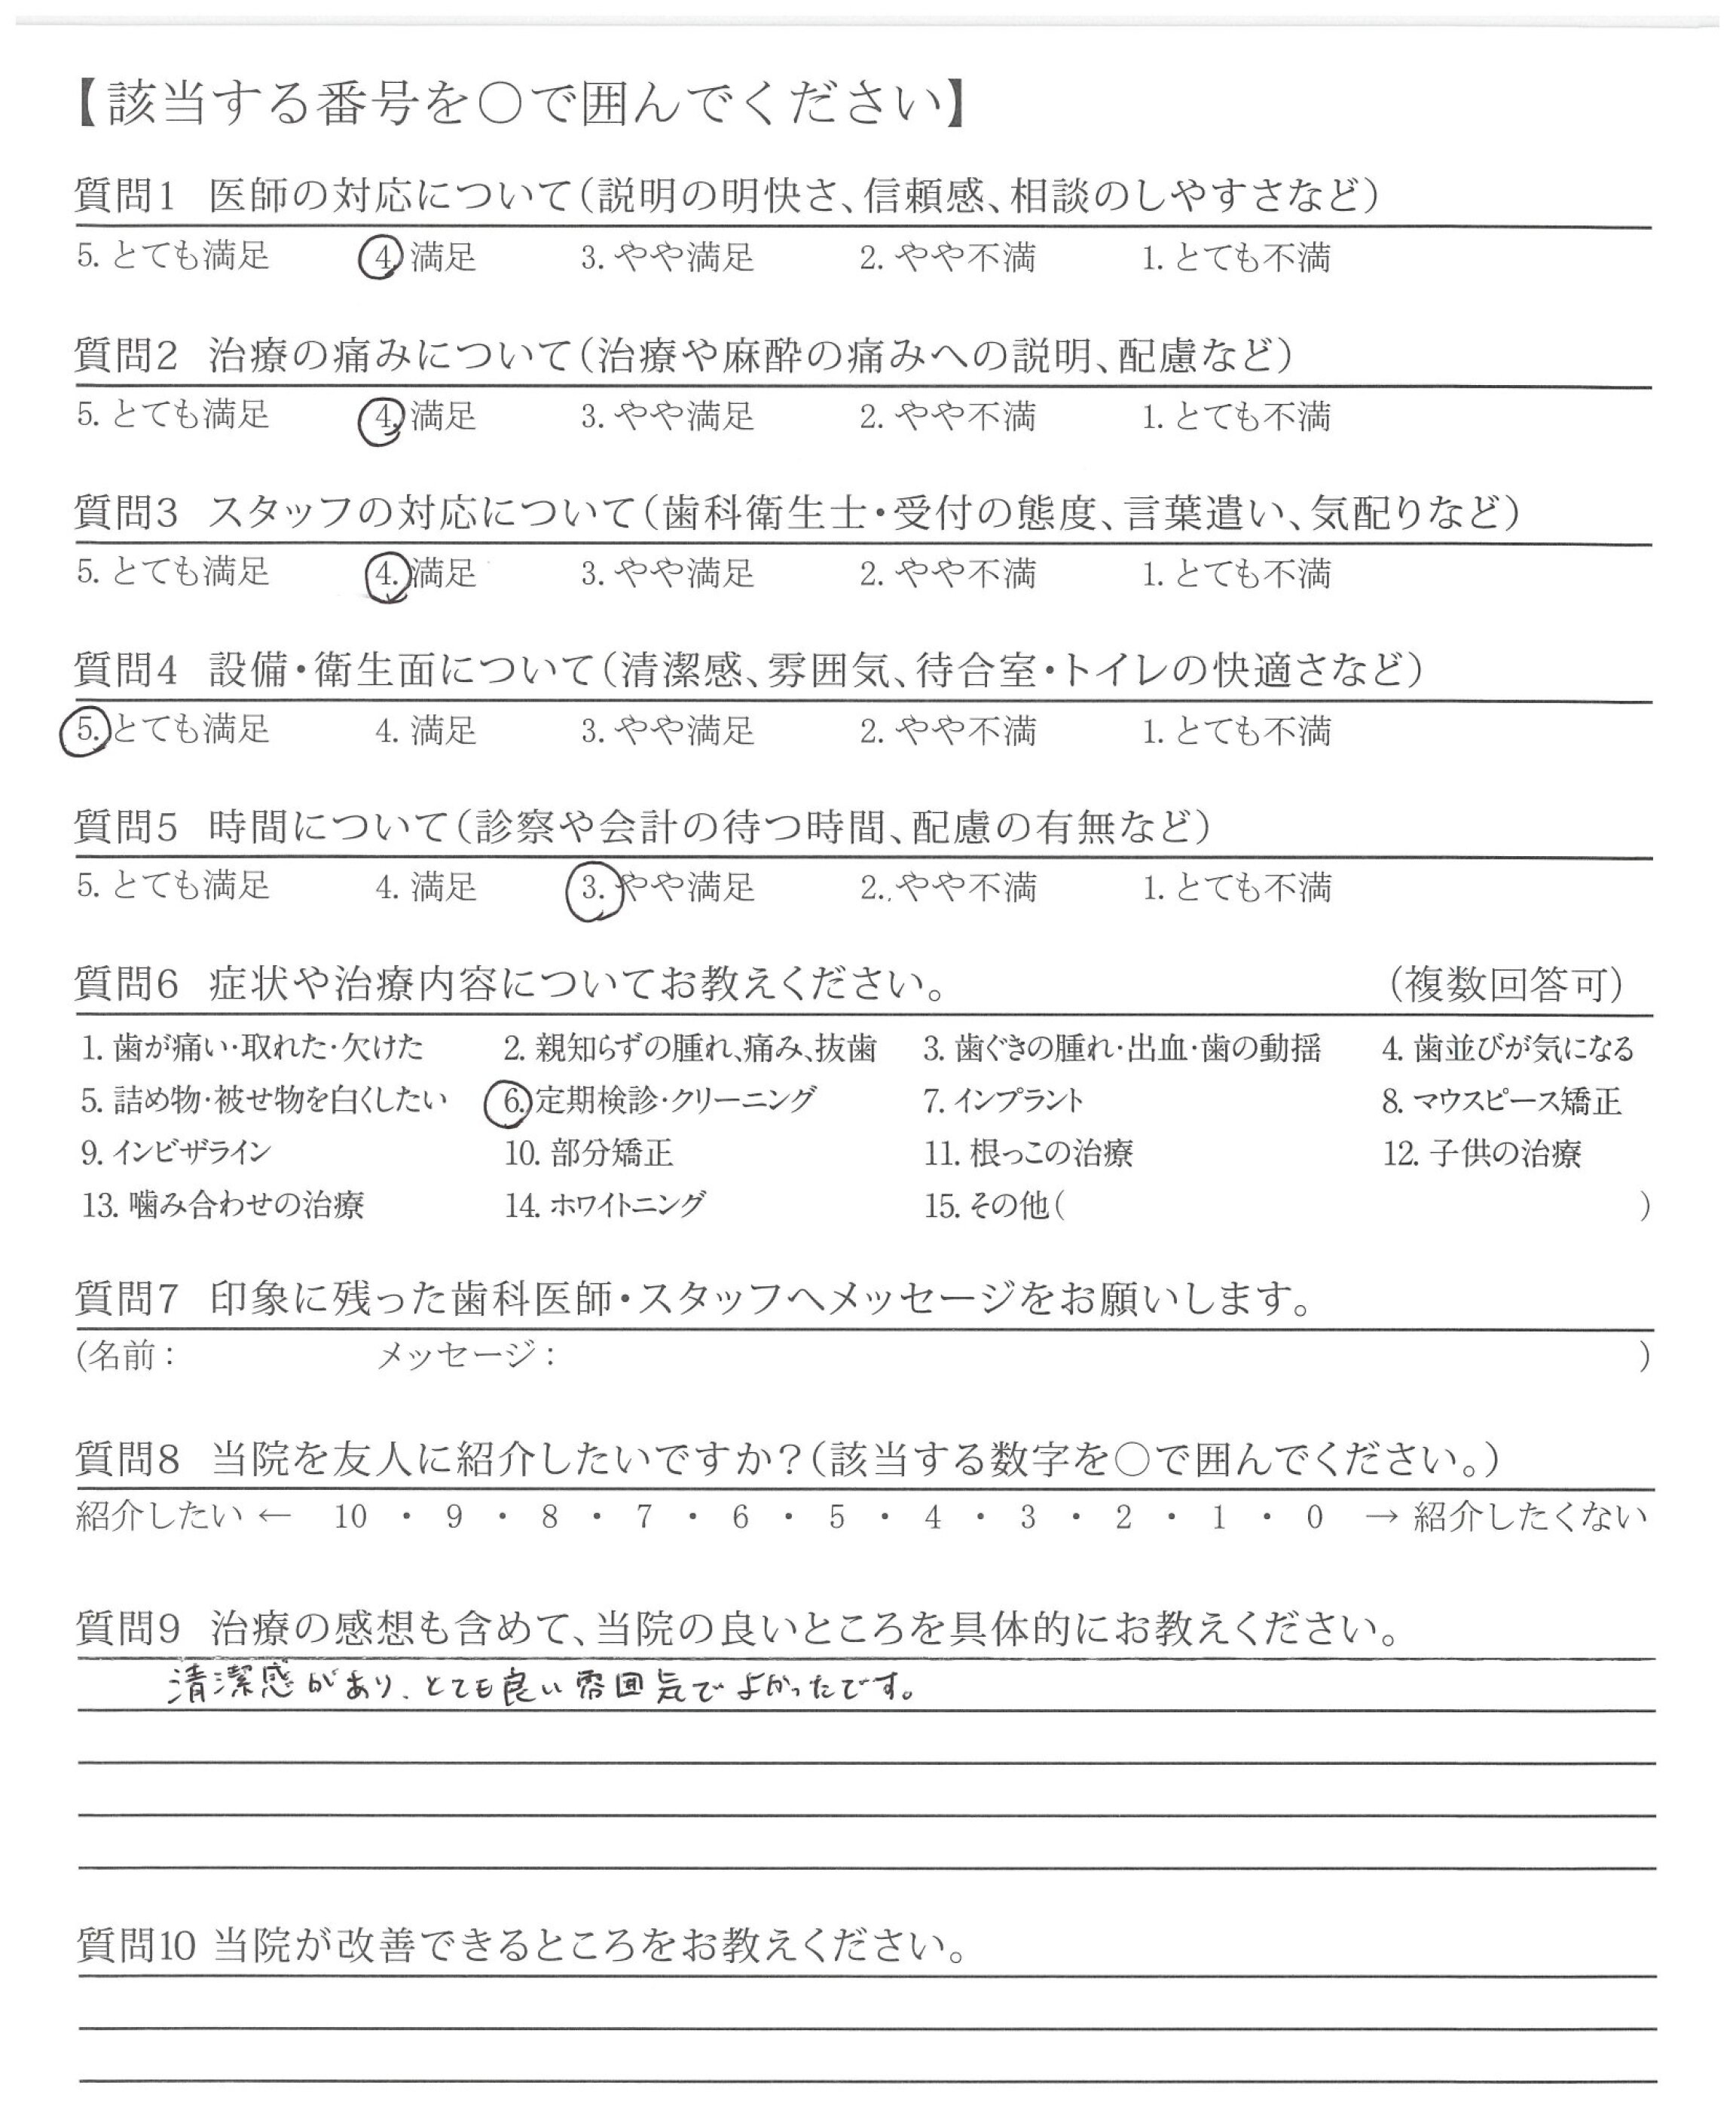 【該当する番号を○で囲んでください】
質問1 医師の対応について(説明の明快さ、信頼感、相談のしやすさなど)
5. とても満足 4. 満足 3. やや満足 2. やや不満 1. とても不満
質問2 治療の痛みについて(治療や麻酔の痛みへの説明、配慮など)
5. とても満足 4. 満足 3. やや満足 2. やや不満 1. とても不満
質問3 スタッフの対応について(歯科衛生士・受付の態度、言葉遣い、気配りなど)
5. とても満足 4. 満足 3. やや満足 2. やや不満 1. とても不満
質問4 設備・衛生面について(清潔感、雰囲気、待合室・トイレの快適さなど)
5. とても満足 4. 満足 3. やや満足 2. やや不満 1. とても不満
質問5 時間について(診察や会計の待つ時間、配慮の有無など)
5. とても満足 4. 満足 3. やや満足 2. やや不満 1. とても不満
質問6 症状や治療内容についてお教えください。 (複数回答可)
1. 歯が痛い・取れた・欠けた 2. 親知らずの腫れ、痛み、抜歯 3. 歯ぐきの腫れ・出血・歯の動揺 4. 歯並びが気になる
5. 詰め物・被せ物を白くしたい 6. 定期検診・クリーニング 7. インプラント 8. マウスピース矯正
9. インビザライン 10. 部分矯正 11. 根っこの治療 12. 子供の治療
13. 噛み合わせの治療 14. ホワイトニング 15. その他( )
質問7 印象に残った歯科医師・スタッフへメッセージをお願いします。
(名前: メッセージ: )
質問8 当院を友人に紹介したいですか?(該当する数字を○で囲んでください。)
紹介したい ← 10 ・ 9 ・ 8 ・ 7 ・ 6 ・ 5 ・ 4 ・ 3 ・ 2 ・ 1 ・ 0 → 紹介したくない
質問9 治療の感想も含めて、当院の良いところを具体的にお教えください。
清潔感があり、とても良い雰囲気でよかったです。
質問10 当院が改善できるところをお教えください。